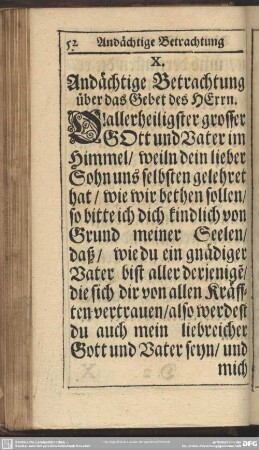 52 Andächtige Betrachtung
X.
Andächtige Betrachtung
über das Gebet des HErrn.
O allerheiligster grosser
GOtt und Vater im
Himmel/ weiln dein lieber
Sohn uns selbsten gelehret
hat/ wie wir bethen sollen/
so bitte ich dich kindlich von
Grund meiner Seelen/
daß/ wie du ein gnädiger
Vater bist aller derjenigẽ/
die sich dir von allen Kräff-
ten vertrauen/ also werdest
du auch mein liebreicher
Gott und Vater seyn/ und
mich